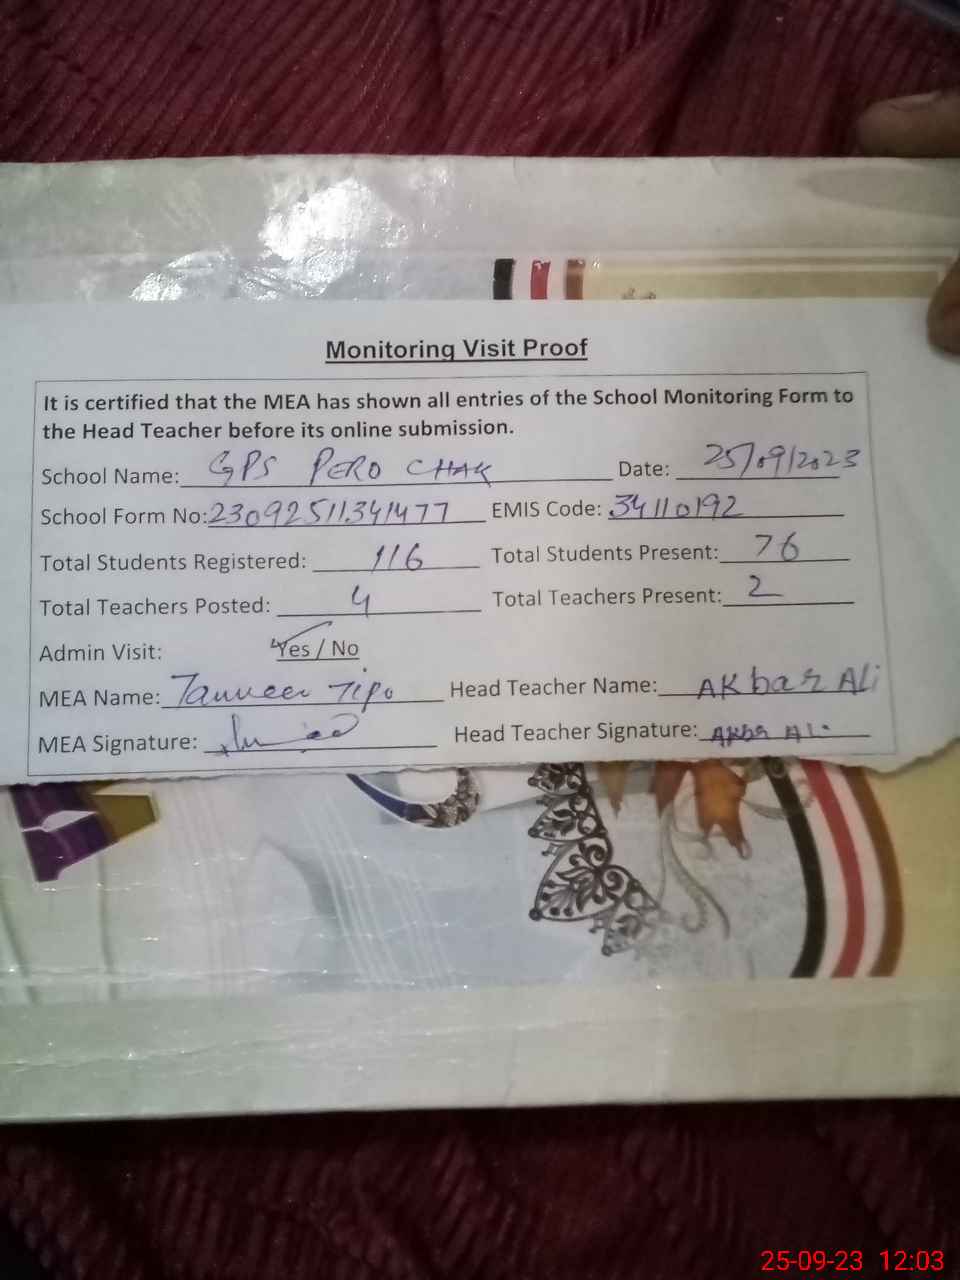 Monitoring Visit Proof
It is certified that the MEA has shown all entries of the School Monitoring Form to
the Head Teacher before its online submission.
School Name: GPS PERO CHAK Date: 25/09/2023
School Form No: 23092511341477 EMIS Code: 34110192
Total Students Registered: 116 Total Students Present: 76
Total Teachers Posted: 4 Total Teachers Present: 2
Admin Visit: Yes / No
MEA Name: Tanveer Tipo Head Teacher Name: AKbar ALi
MEA Signature: Head Teacher Signature: AKbr ALi
25-09-23 12:03